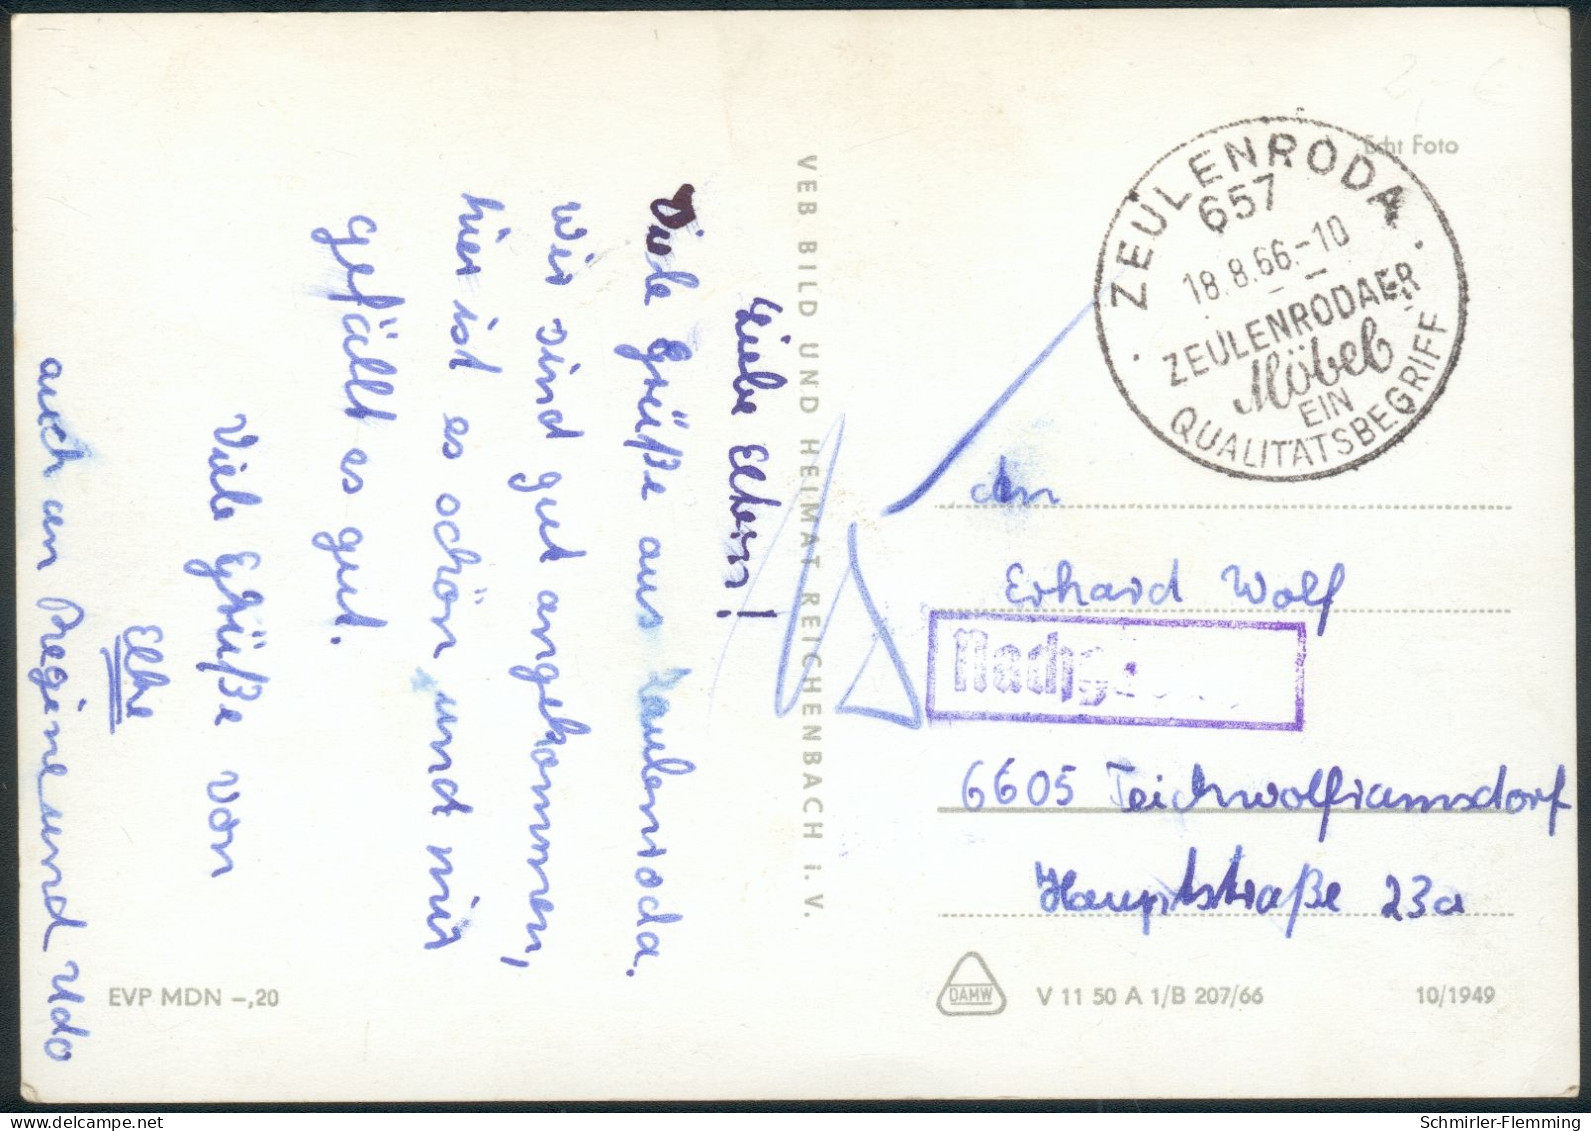 Liebe Eltern!
Viele Grüße aus Zeulenroda.
Wir sind gut angekommen,
hier ist es schön und mir
gefällt es gut.
Viele Grüße von
Elke
auch an Regine und Udo
EVP MDN –,20
VEB BILD UND HEIMAT REICHENBACH i. V.
Echt Foto
ZEULENRODA
657
18.8.66.-10
ZEULENRODAER
Möbel
EIN
QUALITÄTSBEGRIFF
Erhard Wolf
6605 Teichwolframsdorf
Hauptstraße 23a
DAMW
V 11 50 A 1/B 207/66
10/1949
Schmirler-Flemming